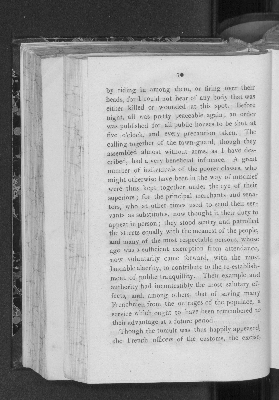 10
by riding in among them, or firing over their
heads, for I could not hear of any body that was
either killed or wounded at this spot. Before
night, all was pretty peaceable again; an order
was published for all public houses to be shut at
five o'clock, and every precaution taken. The
calling together of the town-guard, though they
assembled almost without arms, as I have des-
cribed, had a very beneficial influence. A great
number of individuals of the poorer classes, who
might otherwise have been in the way of mischief
were thus kept together under the eye of their
superiors; for the principal merchants and sena-
tors, who at other times used to send their ser-
vants as substitutes, now thought it their duty to
appear in person; they stood sentry and patrolled
the streets equally with the meanest of the people,
and many of the most respectable persons, whose
age was a sufficient exemption from attendance,
now voluntarily came forward, with the most
laudable alacrity, to contribute to the re-establish-
ment of public tranquillity. Their example and
authority had incontestibly the most salutary ef-
fects, and among others that of saving many
Frenchmen from the outrages of the populace, a
service which ought to have been remembered to
their advantage at a future period.
Though the tumult was thus happily appeased,
the French officers of the customs, the excise,